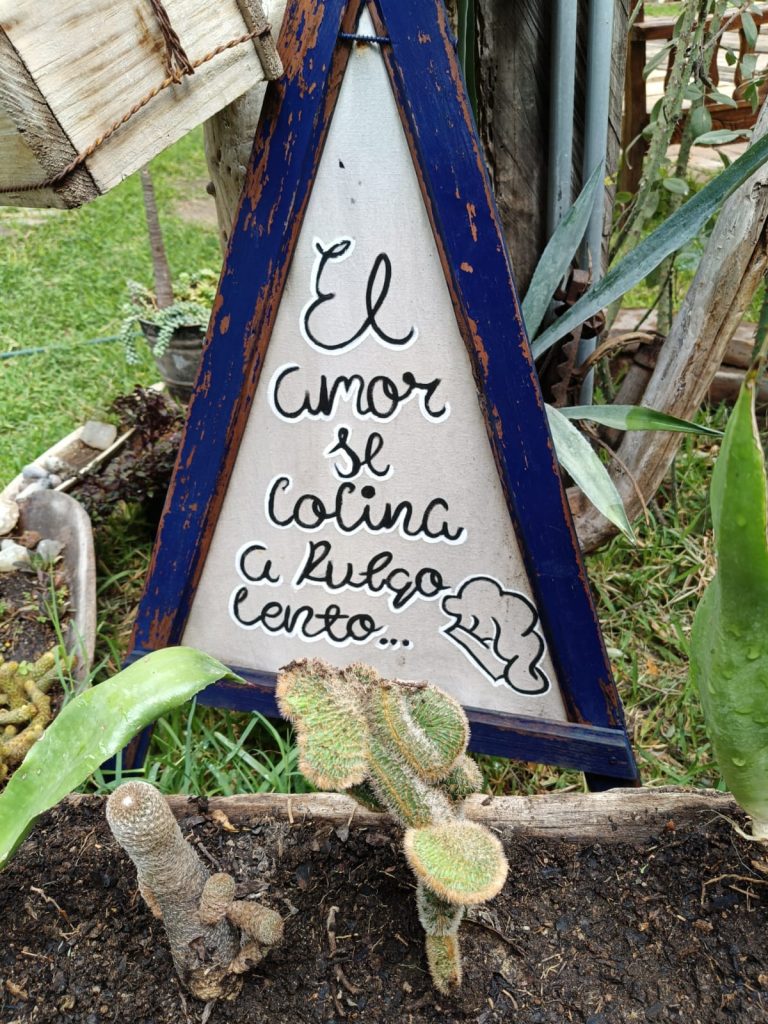 El
amor
se
Cocina
a Fuego
Lento...